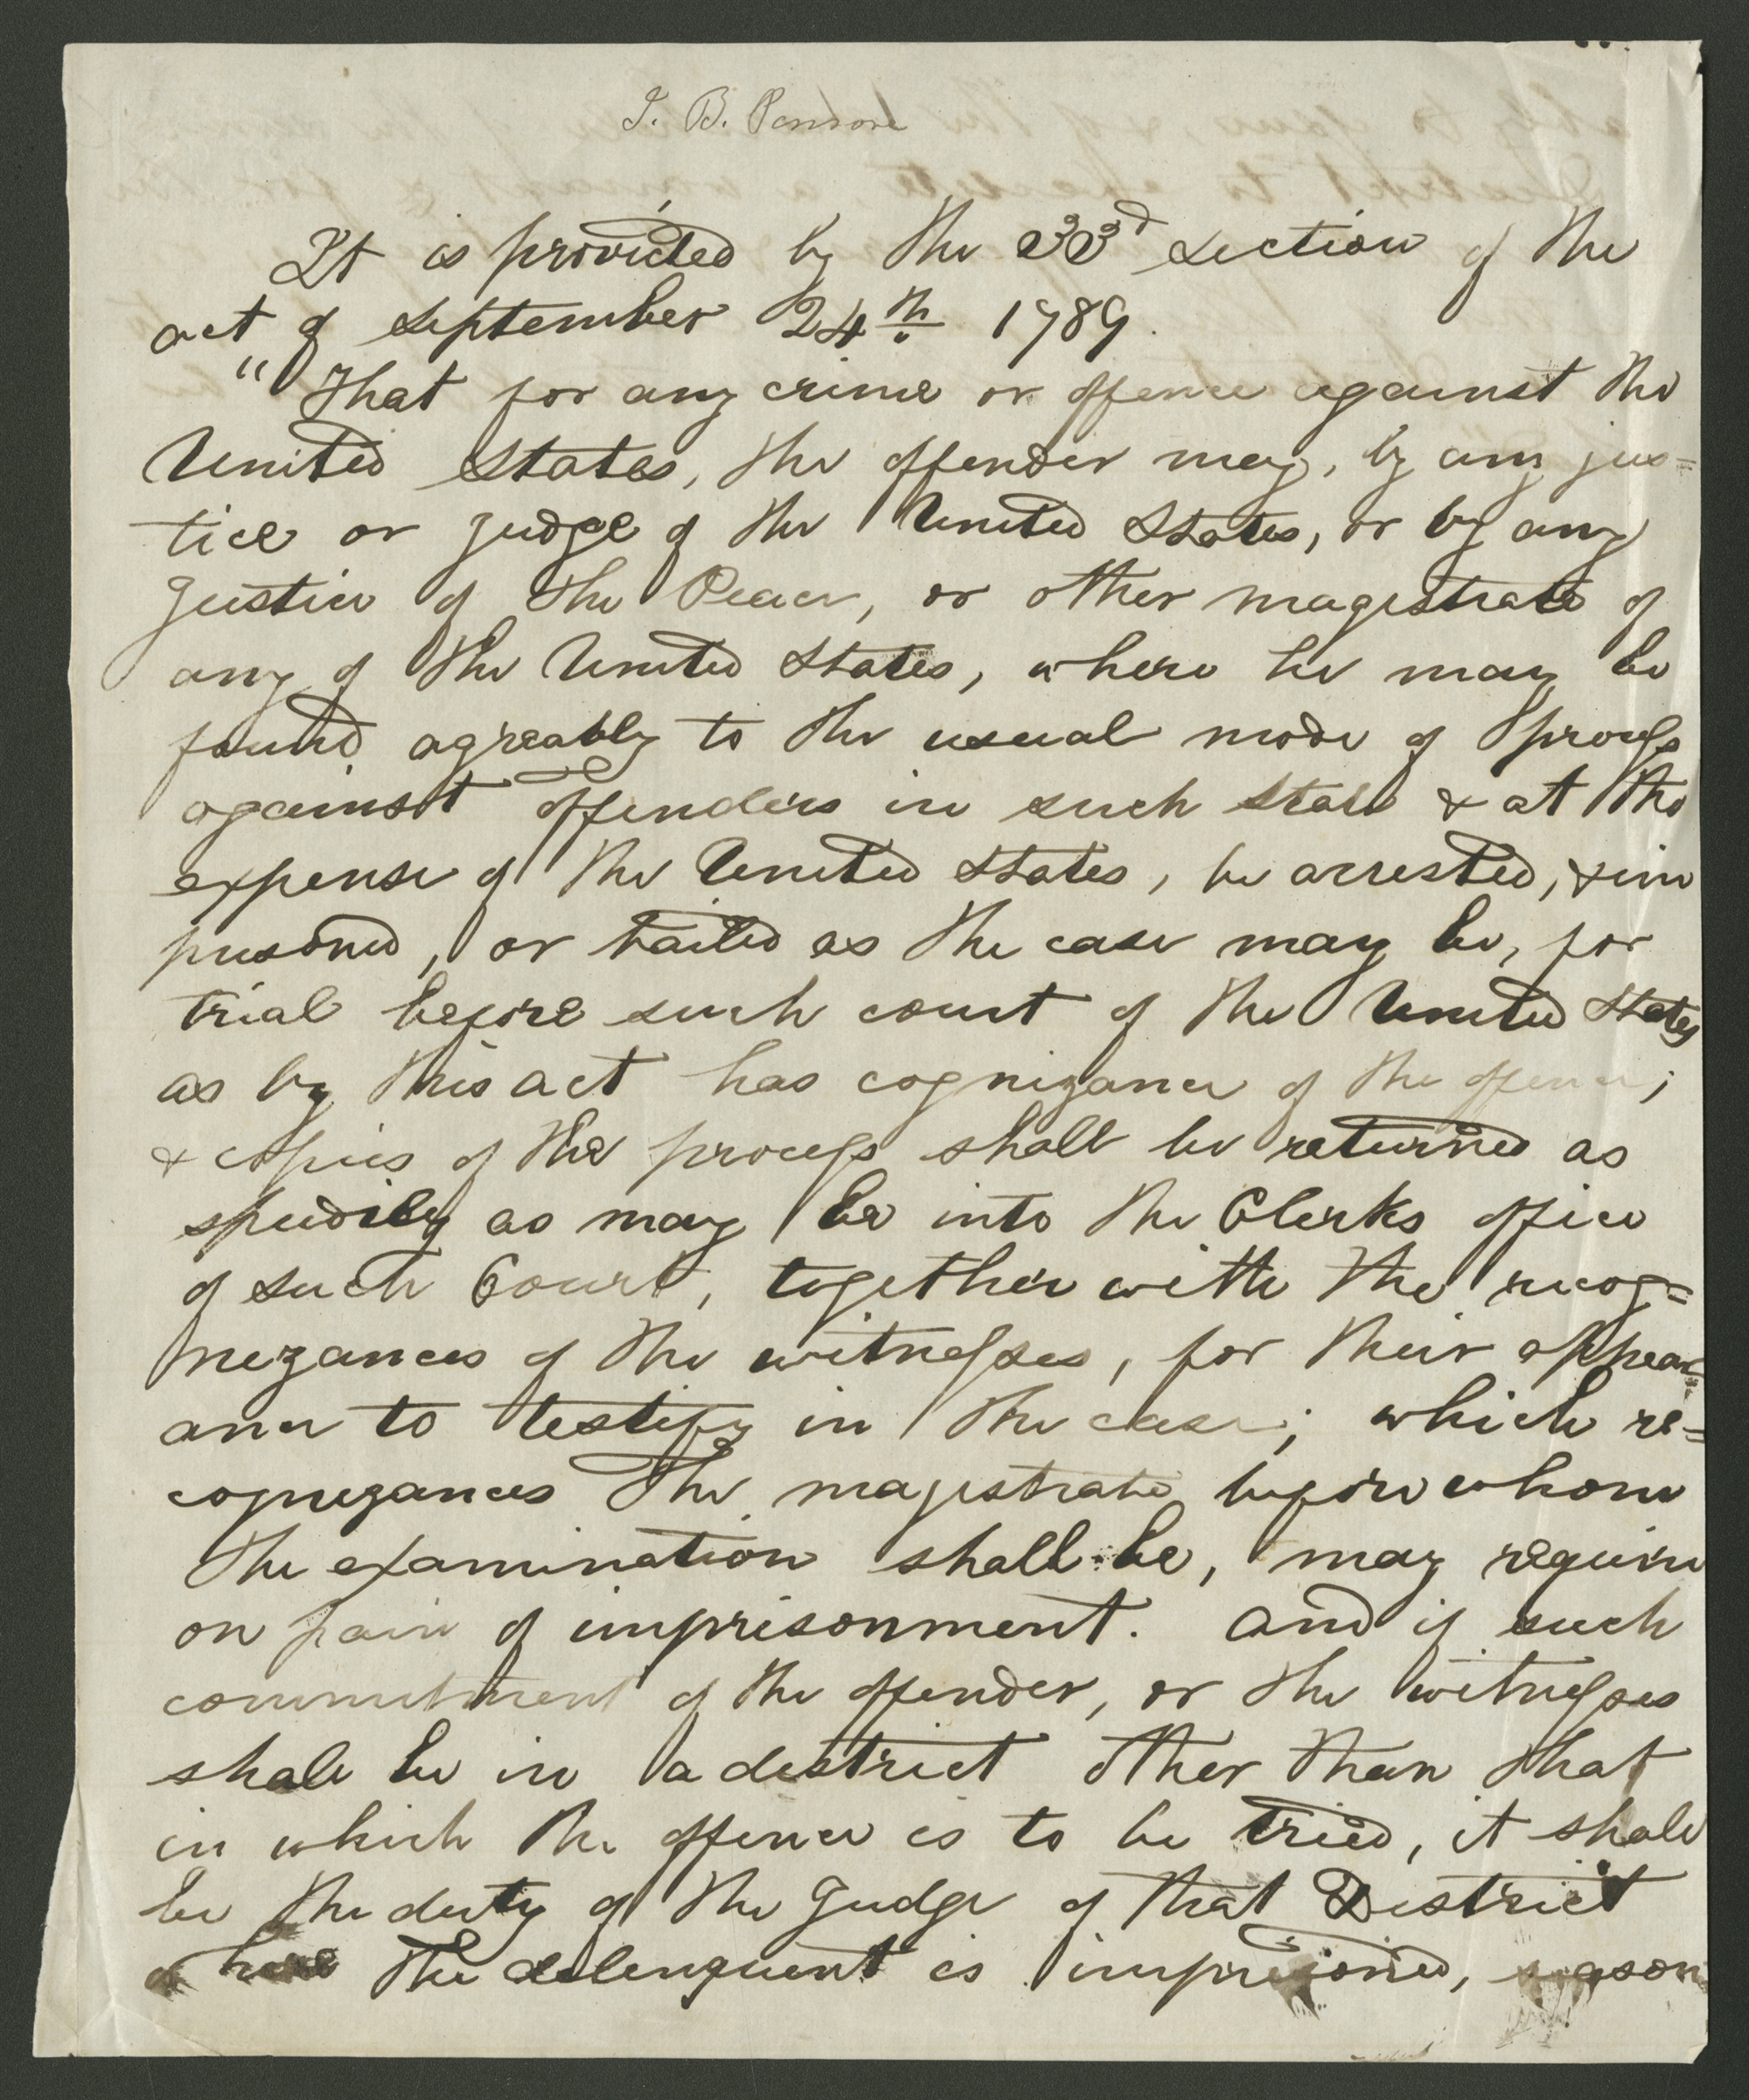 It is provided by the 33d section of the
act of September 24th 1789.
"That for any crime or offence against the
United States, the offender may, by any jus=
tice or Judge of the United States, or by any
Justice of the Peace, or other magistrate of
any of the United States, where he may be
found agreably to the usual mode of process
against offenders in such State & at the
expense of the United States, be arrested, & im
prisoned, or bailed as the case may be, for
trial before such court of the United States
as by this act has cognizance of the offence;
& copies of the process shall be returned as
speedily as may be into the Clerks office
of such Court, together with the recog=
nezances of the witnesses, for their appear
ance to testify in the case; which re=
cognezances the magistrate before whom
the examination shall be, may require
on pain of imprisonment. And if such
commitment of the offender, or the witnesses
shall be in a district other than that
in which the offence is to be tried, it shall
be the duty of the Judge of that District
where the delenquent is imprisoned, season